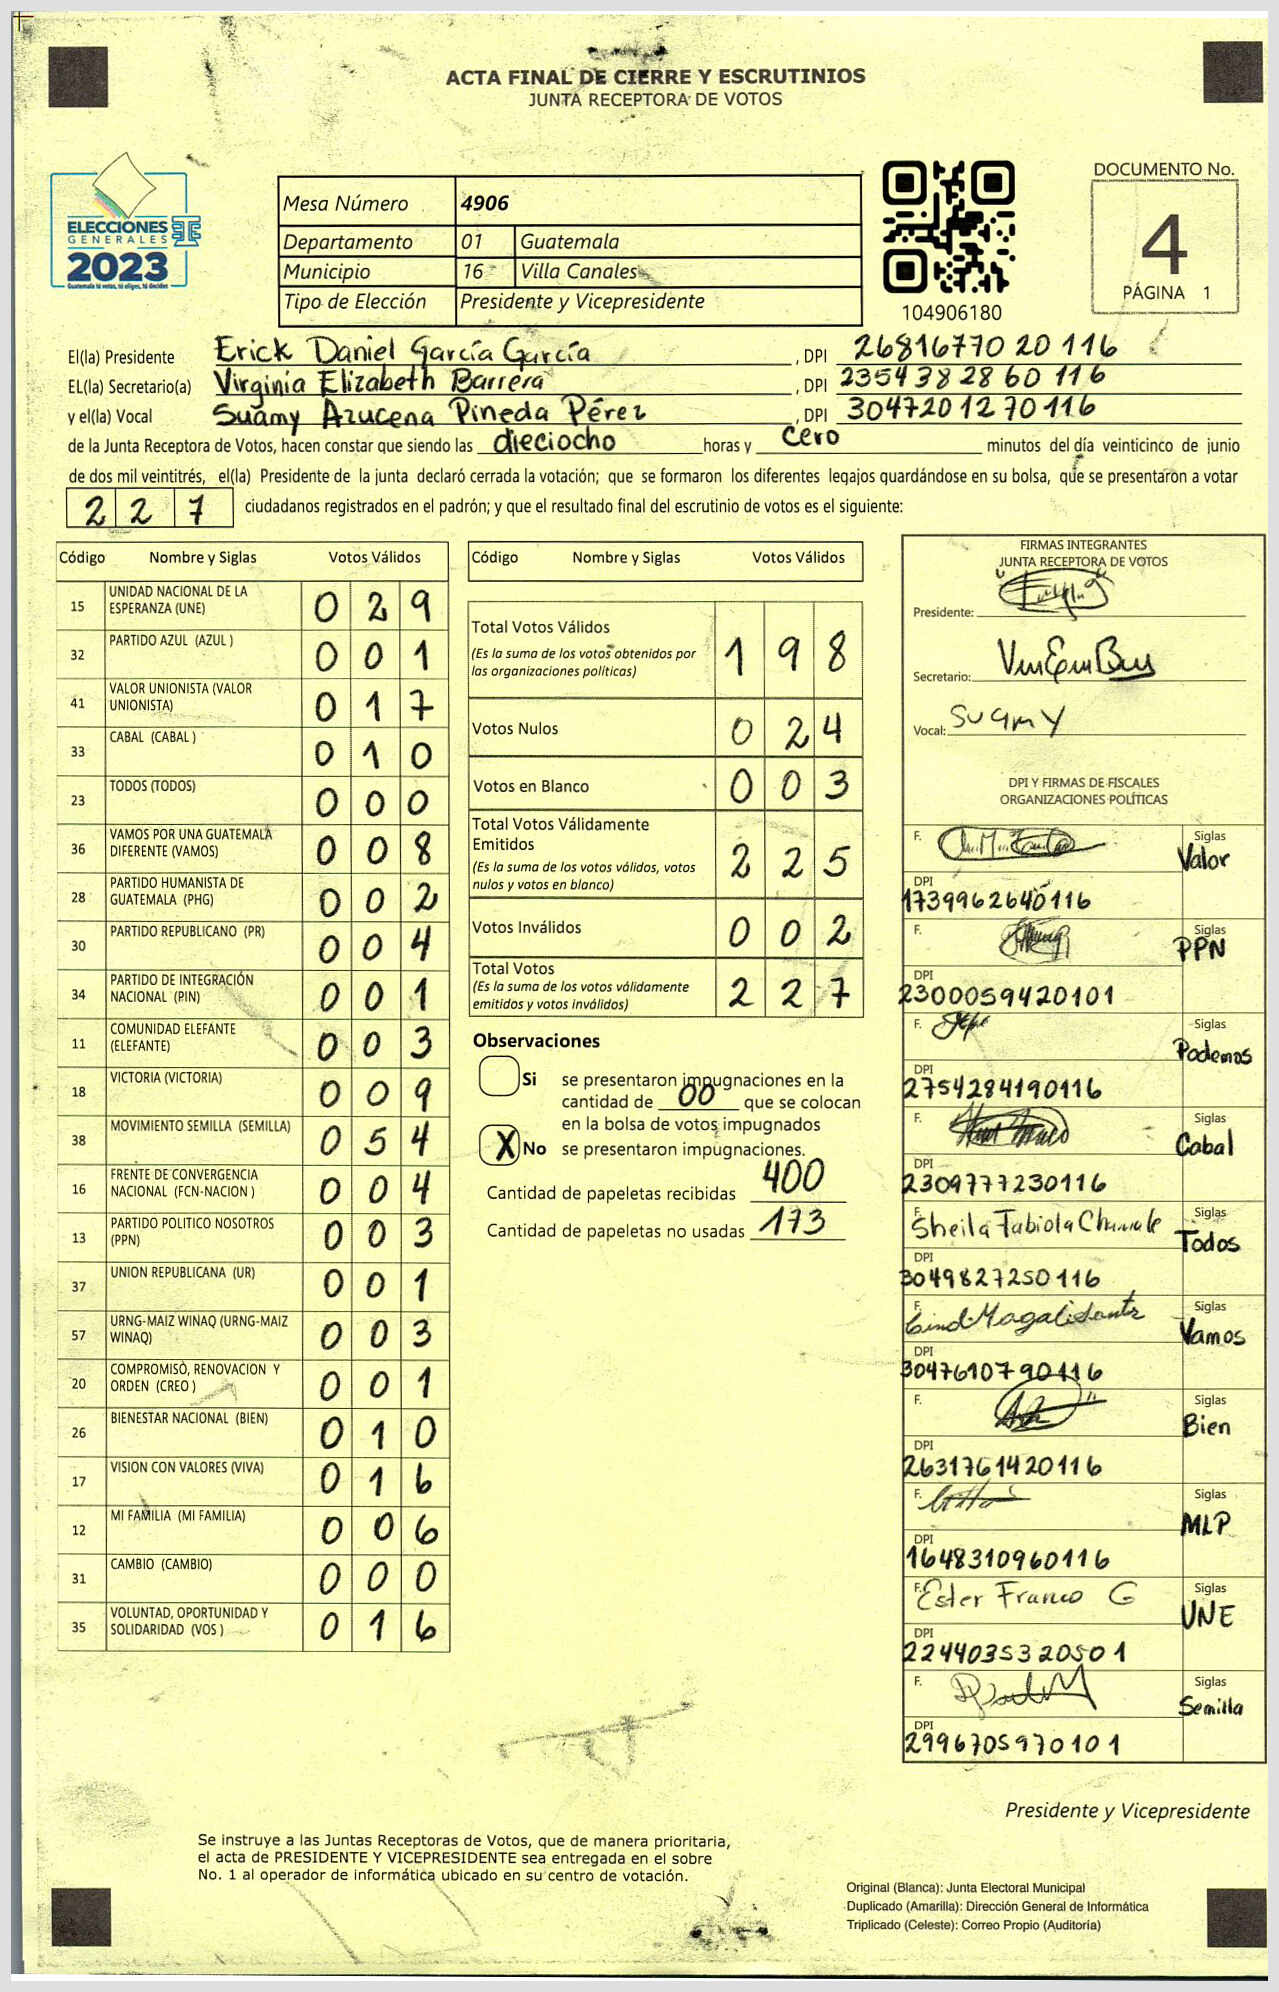 ACTA FINAL DE CIERRE Y ESCRUTINIOS
JUNTA RECEPTORA DE VOTOS
ELECCIONES
GENERALES
2023
Guatemala tú votas, tú eliges, tú decides
Mesa Número 4906
Departamento 01 Guatemala
Municipio 16 Villa Canales
Tipo de Elección Presidente y Vicepresidente
104906180
DOCUMENTO No.
4
PÁGINA 1
El(la) Presidente Erick Daniel García García, DPI 26816770 20 116
EL(la) Secretario(a) Virginia Elizabeth Barrera, DPI 2354382860 116
y el(la) Vocal Suamy Azucena Pineda Pérez, DPI 3047201270116
de la Junta Receptora de Votos, hacen constar que siendo las dieciocho horas y cero minutos del día veinticinco de junio
de dos mil veintitrés, el(la) Presidente de la junta declaró cerrada la votación; que se formaron los diferentes legajos quardándose en su bolsa, que se presentaron a votar
2 2 7 ciudadanos registrados en el padrón; y que el resultado final del escrutinio de votos es el siguiente:
Código Nombre y Siglas Votos Válidos
15 UNIDAD NACIONAL DE LA
ESPERANZA (UNE) 0 2 9
32 PARTIDO AZUL (AZUL ) 0 0 1
41 VALOR UNIONISTA (VALOR
UNIONISTA) 0 1 7
33 CABAL (CABAL ) 0 1 0
23 TODOS (TODOS) 0 0 0
36 VAMOS POR UNA GUATEMALA
DIFERENTE (VAMOS) 0 0 8
28 PARTIDO HUMANISTA DE
GUATEMALA (PHG) 0 0 2
30 PARTIDO REPUBLICANO (PR) 0 0 4
34 PARTIDO DE INTEGRACIÓN
NACIONAL (PIN) 0 0 1
11 COMUNIDAD ELEFANTE
(ELEFANTE) 0 0 3
18 VICTORIA (VICTORIA) 0 0 9
38 MOVIMIENTO SEMILLA (SEMILLA) 0 5 4
16 FRENTE DE CONVERGENCIA
NACIONAL (FCN-NACION ) 0 0 4
13 PARTIDO POLITICO NOSOTROS
(PPN) 0 0 3
37 UNION REPUBLICANA (UR) 0 0 1
57 URNG-MAIZ WINAQ (URNG-MAIZ
WINAQ) 0 0 3
20 COMPROMISO, RENOVACION Y
ORDEN (CREO ) 0 0 1
26 BIENESTAR NACIONAL (BIEN) 0 1 0
17 VISION CON VALORES (VIVA) 0 1 6
12 MI FAMILIA (MI FAMILIA) 0 0 6
31 CAMBIO (CAMBIO) 0 0 0
35 VOLUNTAD, OPORTUNIDAD Y
SOLIDARIDAD (VOS ) 0 1 6
Código Nombre y Siglas Votos Válidos
Total Votos Válidos
(Es la suma de los votos obtenidos por
las organizaciones políticas) 1 9 8
Votos Nulos 0 2 4
Votos en Blanco 0 0 3
Total Votos Válidamente
Emitidos
(Es la suma de los votos válidos, votos
nulos y votos en blanco) 2 2 5
Votos Inválidos 0 0 2
Total Votos
(Es la suma de los votos válidamente
emitidos y votos inválidos) 2 2 7
Observaciones
Si se presentaron impugnaciones en la
cantidad de 00 que se colocan
en la bolsa de votos impugnados
X No se presentaron impugnaciones.
Cantidad de papeletas recibidas 400
Cantidad de papeletas no usadas 173
FIRMAS INTEGRANTES
JUNTA RECEPTORA DE VOTOS
Presidente:
Secretario:
Vocal: Suamy
DPI Y FIRMAS DE FISCALES
ORGANIZACIONES POLÍTICAS
F. Siglas
Valor
DPI
1739962640116
F. Siglas
PPN
DPI
2300059420101
F. Siglas
Podemos
DPI
2754284190116
F. Siglas
Cabal
DPI
2309777230116
F. Sheila Fabiola Siglas
Todos
DPI
3049827250116
F. Siglas
Vamos
DPI
3047610790116
F. Siglas
Bien
DPI
2631761420116
F. Siglas
MLP
DPI
1648310960116
F. Ester Franco G Siglas
UNE
DPI
2244035320501
F. Siglas
Semilla
DPI
2996705970101
Presidente y Vicepresidente
Se instruye a las Juntas Receptoras de Votos, que de manera prioritaria,
el acta de PRESIDENTE Y VICEPRESIDENTE sea entregada en el sobre
No. 1 al operador de informática ubicado en su centro de votación.
Original (Blanca): Junta Electoral Municipal
Duplicado (Amarilla): Dirección General de Informática
Triplicado (Celeste): Correo Propio (Auditoría)